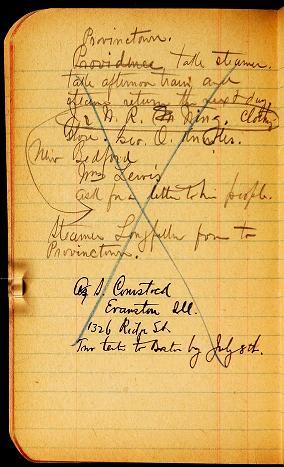 Provincetown.
Providence, take steamer.
take afternoon train, and
steamer return the next day.
Dr W. R. King. Clothing
Hon. Geo. O.
New Bedford
Jms Lewis
ask for a letter to his people.
Steamer Longfellow from to
Provincetown.
S. Comstock
Evanston Ill.
1326 Ridge St
Two tents to Boston by July 8th.